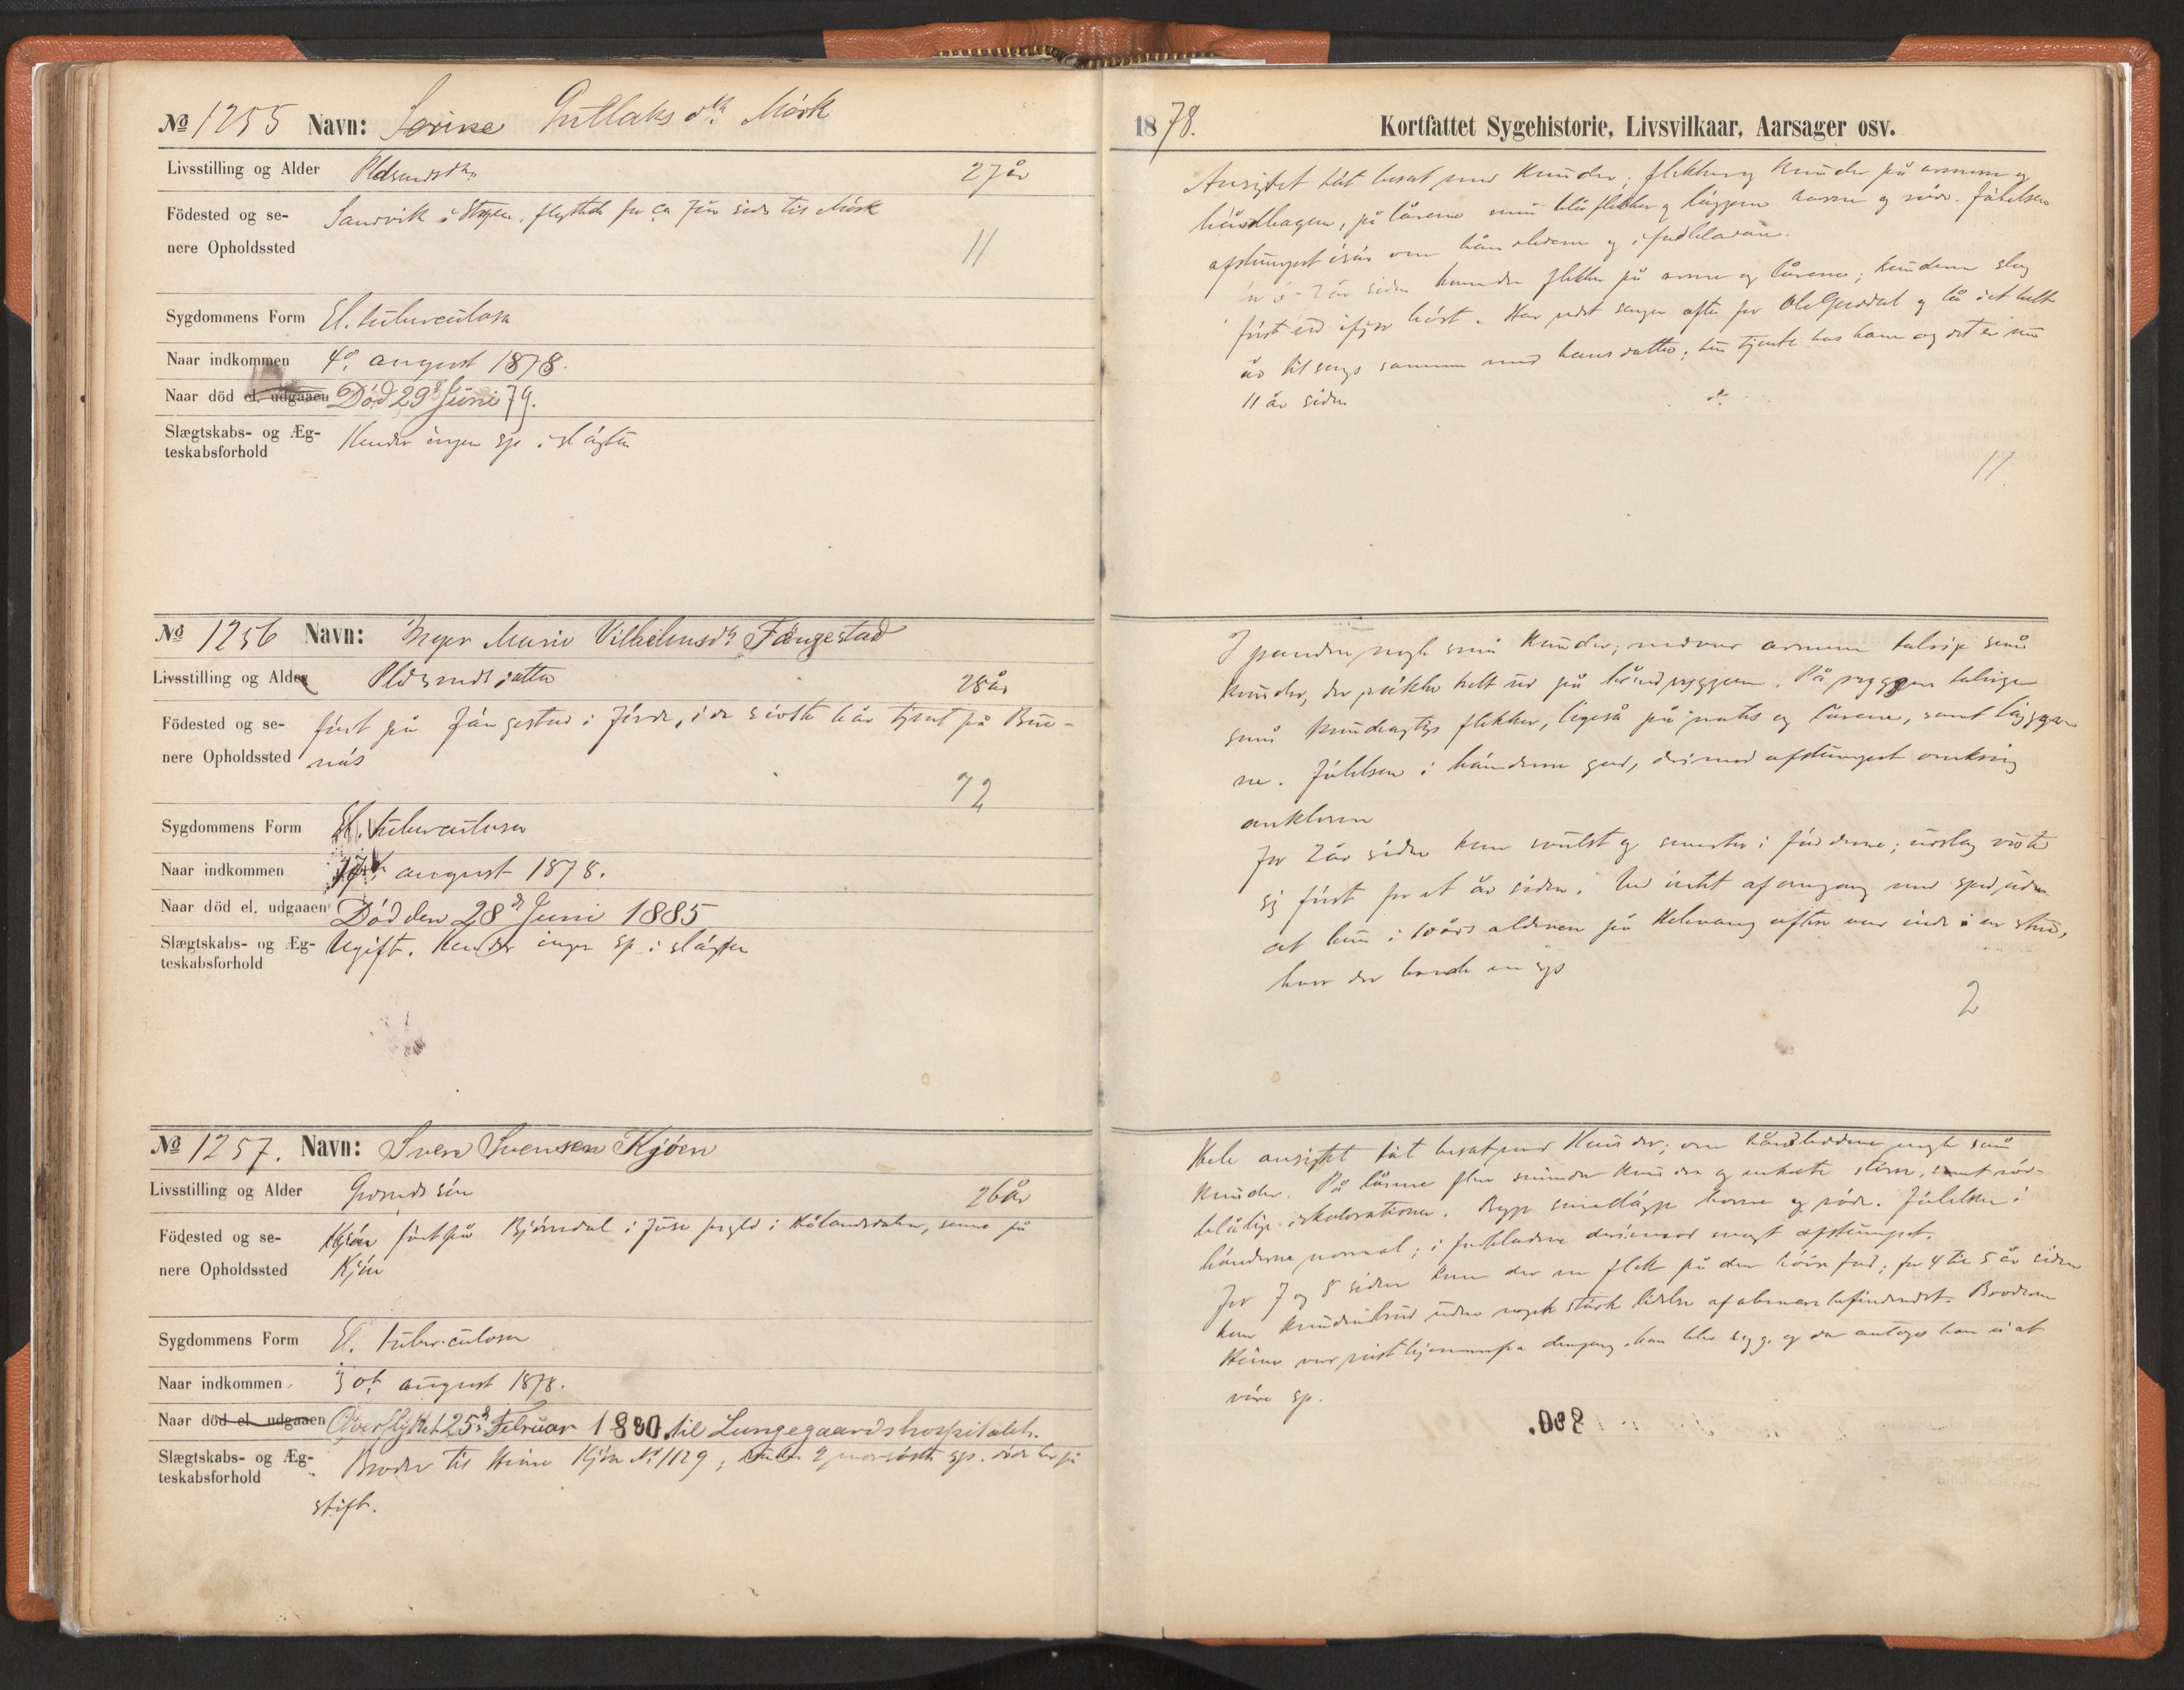 No 1255 Navn: Sorine Gutlaks dtr Mörk
Livsstilling og Alder Pldsmdsdtr 27 år
Födested og se-
nere Opholdssted
Sandvik i Stryn, flyttede for ca 7 år siden til Mörk
11
Sygdommens Form El. tuberculosa
Naar indkommen 4de august 1878.
Naar död el. udgaaen Död 29de Juni 79.
Slægtskabs- og Æg-
teskabsforhold
Kender ingen sp. i slägten
No 1256 Navn: Inger Marie Vilhelmsdtr Fängestad
Livsstilling og Alder Pldsmds datter 28 år
Födested og se-
nere Opholdssted
föst på Fängestad i Förde, i de sidste 6 år tjent på Bru-
näs
72
Sygdommens Form El. tuberculosa
Naar indkommen august 1878.
Naar död el. udgaaen Död den 28de Juni 1885
Slægtskabs- og Æg-
teskabsforhold
Ugift. Kender ingen sp. i slägten
No 1257. Navn: Sven Svensen Kjöen
Livsstilling og Alder Grdmds sön 26 år
Födested og se-
nere Opholdssted
födt på Björndal i Juse prgld i Hålandsdalen, senere på
Kjön
Sygdommens Form El. tuberculosa
Naar indkommen 30te august 1878.
Naar död el. udgaaen Overflyttet 25de Februar 1880 til Lungegaardshospitalet.
Slægtskabs- og Æg-
teskabsforhold
Broder til Heine Kjön No 1129, 2 sp. döde her på
stift.
1878.
Kortfattet Sygehistorie, Livsvilkaar, Aarsager osv.
Ansigtet tät besat med knuder; flekker og knuder på armene og
håndbagen, på lårene små blå flekker og läggene harne og röde. Fölelsen
afstumpet isär om håndledene og i fodbladene.
år siden kom der flekker på arme og lårene; knuderne slog
först ud ifjor höst. Har redt senger ofte for Ole Gjerdal og lå i et helt
år til sengs sammen med hans datter; hun tjente hos ham og det er nu
11 år siden
11
I panden nogle små knuder; nedover armene talrige små
knuder, der räkker helt ud på håndryggene. På ryggen talrige
små knudeagtige flekker, ligeså på nates og lårene, samt läggene
ne. Fölelsen i hånderne god, derimod afstumpet omkring
anklerne
For 2 år siden kom svulst og smerter i födderne; udslag viste
sig först for et år siden. Ved intet af omgang med spedalske uden
at hun i 10 års alderen på Helvang ofte var inde i en stue,
hvor der boede en syg
2
Hele ansigtet tät besat med knuder; om håndleddene nogle små
knuder. På lårene flere mindre knuder og enkelte större, samt röd-
blålige diskolorationer. Begge smallägge harne og röde. Fölelsen i
hånderne normal; i fodbladene derimod meget afstumpet.
For 7 og 8 siden kom der en flek på den höire fod; for 4 til 5 år siden
kom knudeudbrud uden noget stärk lidelse af almenbefindendet. Broderen
Heine var reist hjemmefra dengang han blev syg, og da antoges han ei at
väre sp.